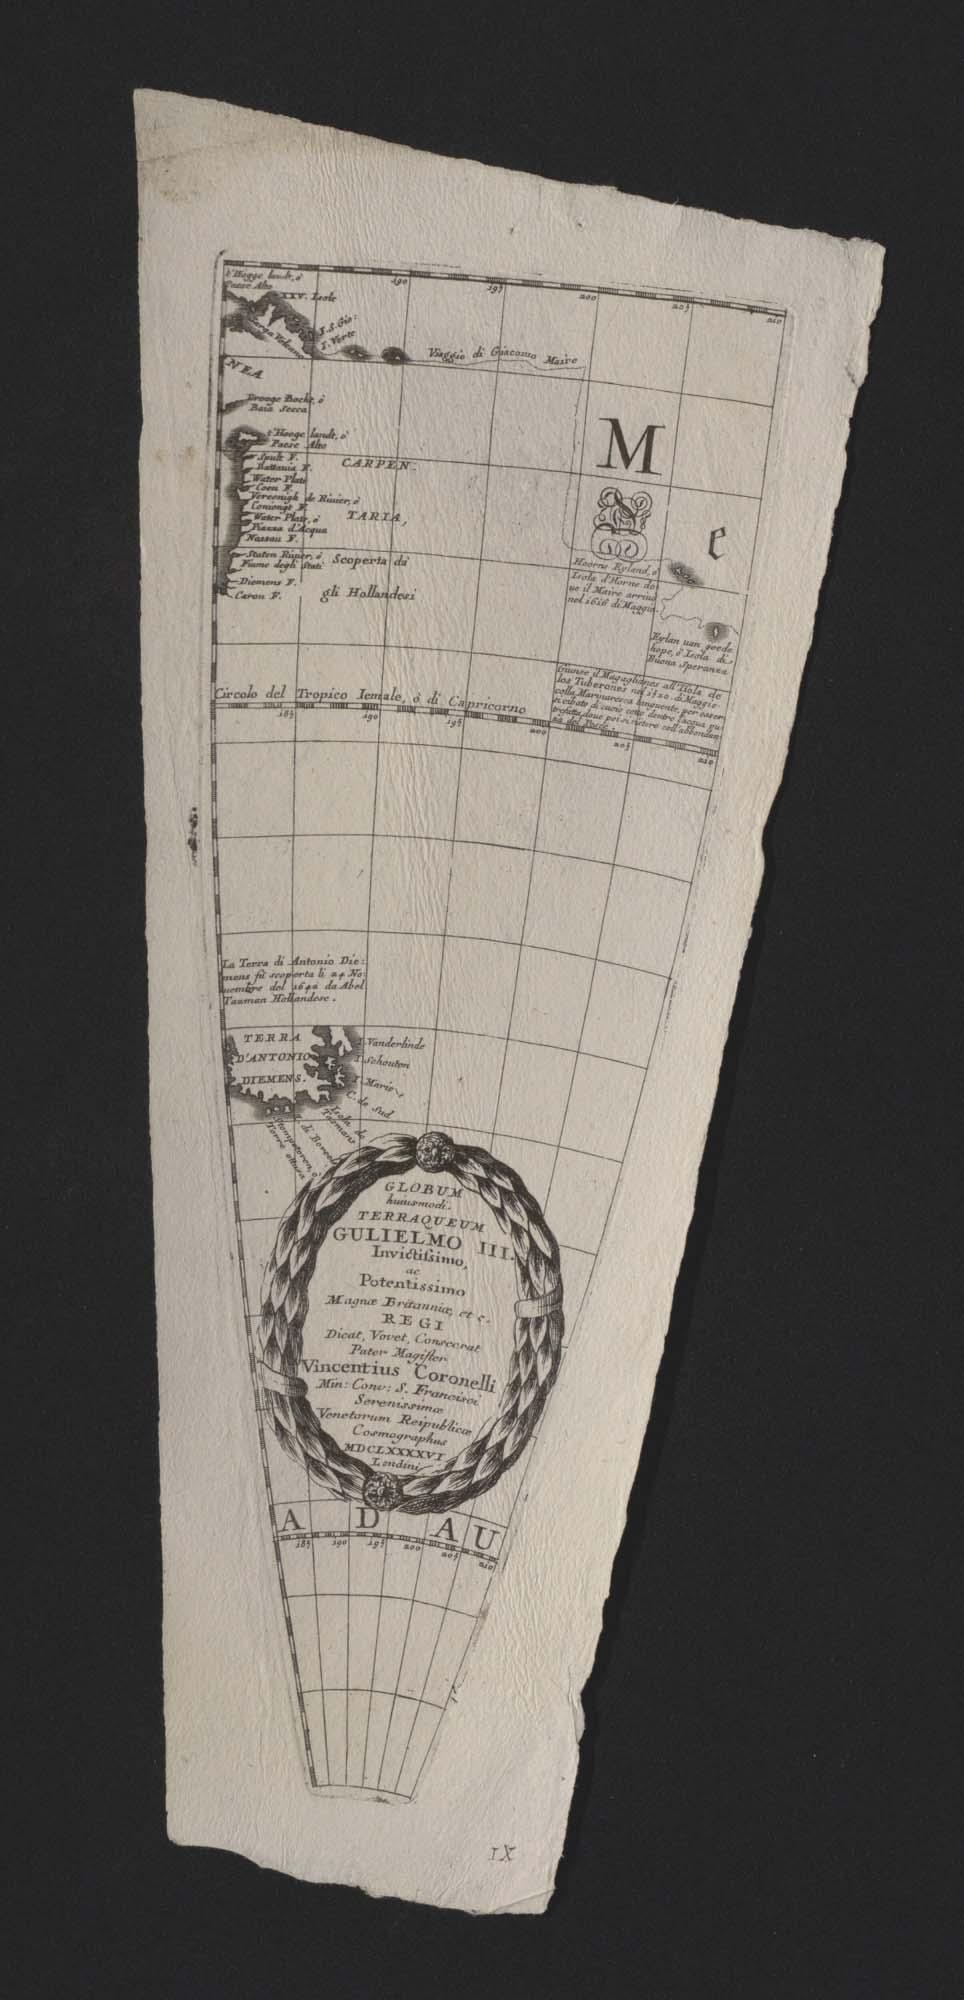 t'Hogge landt, ò
Paese Alto
190
195
200
205
210
XXV. Isole
I. S. Gio:
I. Verte
Viaggio di Giacomo Maire
NEA
Drooge Bocht, ò
Baia Secca
t'Hooge landt, ò
Paese Alto
Spult F.
Battania F.
Water Plats
Coen F.
Vereenigh de Rivier, ò
Water Plats, ò
Piazza d'Acqua
Nassau F.
Staten Rivier, ò
Fiume degli Stati
Diemens F.
Caron F.
CARPEN-
TARIA,
Scoperta dà
gli Hollandesi
M
e
Hoorns Eyland, ò
Isola d'Horne do
ue il Maire arriuò
nel 1616 di Maggio.
Eylan uan goede
hope, ò Isola di
Buona Speranza
Giunse il Magaglianes all'Isola de
los Tuberones nel 1520. di Maggio
colla Marinaresca languente, per esser
si cibata di cuoio cotto dentro l'acqua pu-
trefatta, doue poi si ristorò coll'abbondan
za del Pesce.
Circolo del Tropico Iemale, ò di Capricorno
185
190
195
200
205
210
La Terra di Antonio Die:
mens fù scoperta li 24 No:
uembre del 1642 da Abel
Tasman Hollandese.
TERRA
D'ANTONIO
DIEMENS.
I. Vanderlinde
I. Schouten
I. Marie
C. de Sud
Isola de
Tasmans
I. di Boreel
GLOBUM
huiusmodi
TERRAQUEUM
GULIELMO III.
Invictissimo,
ac
Potentissimo
Magnæ Britanniæ, et c.
REGI
Dicat, Vovet, Consecrat
Pater Magister
Vincentius Coronelli
Min: Conv: S. Francisci
Serenissimæ
Venetorum Reipublicæ
Cosmographus
MDCLXXXXVI
Londini
A D A U
185
190
195
200
205
210
IX